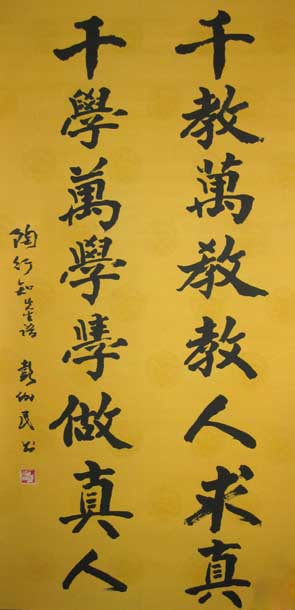 千教萬教教人求真
千學萬學學做真人
陶行知先生语